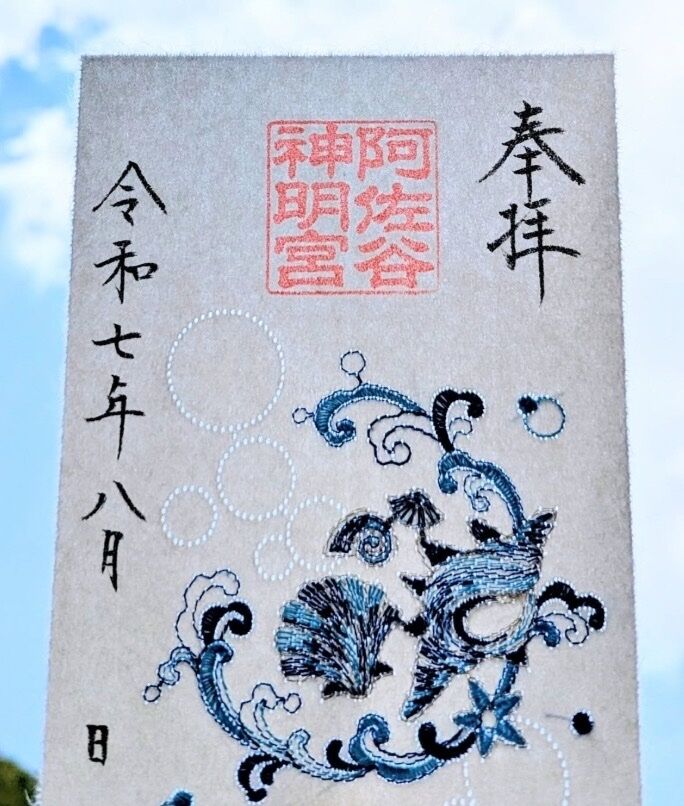 奉拝
阿佐谷
神明宮
令和七年八月 日